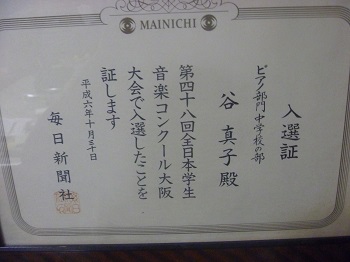 MAINICHI
入選証
ピアノ部門中学校の部
谷真子殿
第四十八回全日本学生
音楽コンクール大阪
大会で入選したことを
証します
平成六年十月三十日
毎日新聞社